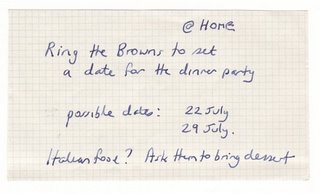 @ HOME
Ring the Browns to set
a date for the dinner party
possible dates: 22 July
29 July.
Italian food? Ask them to bring dessert